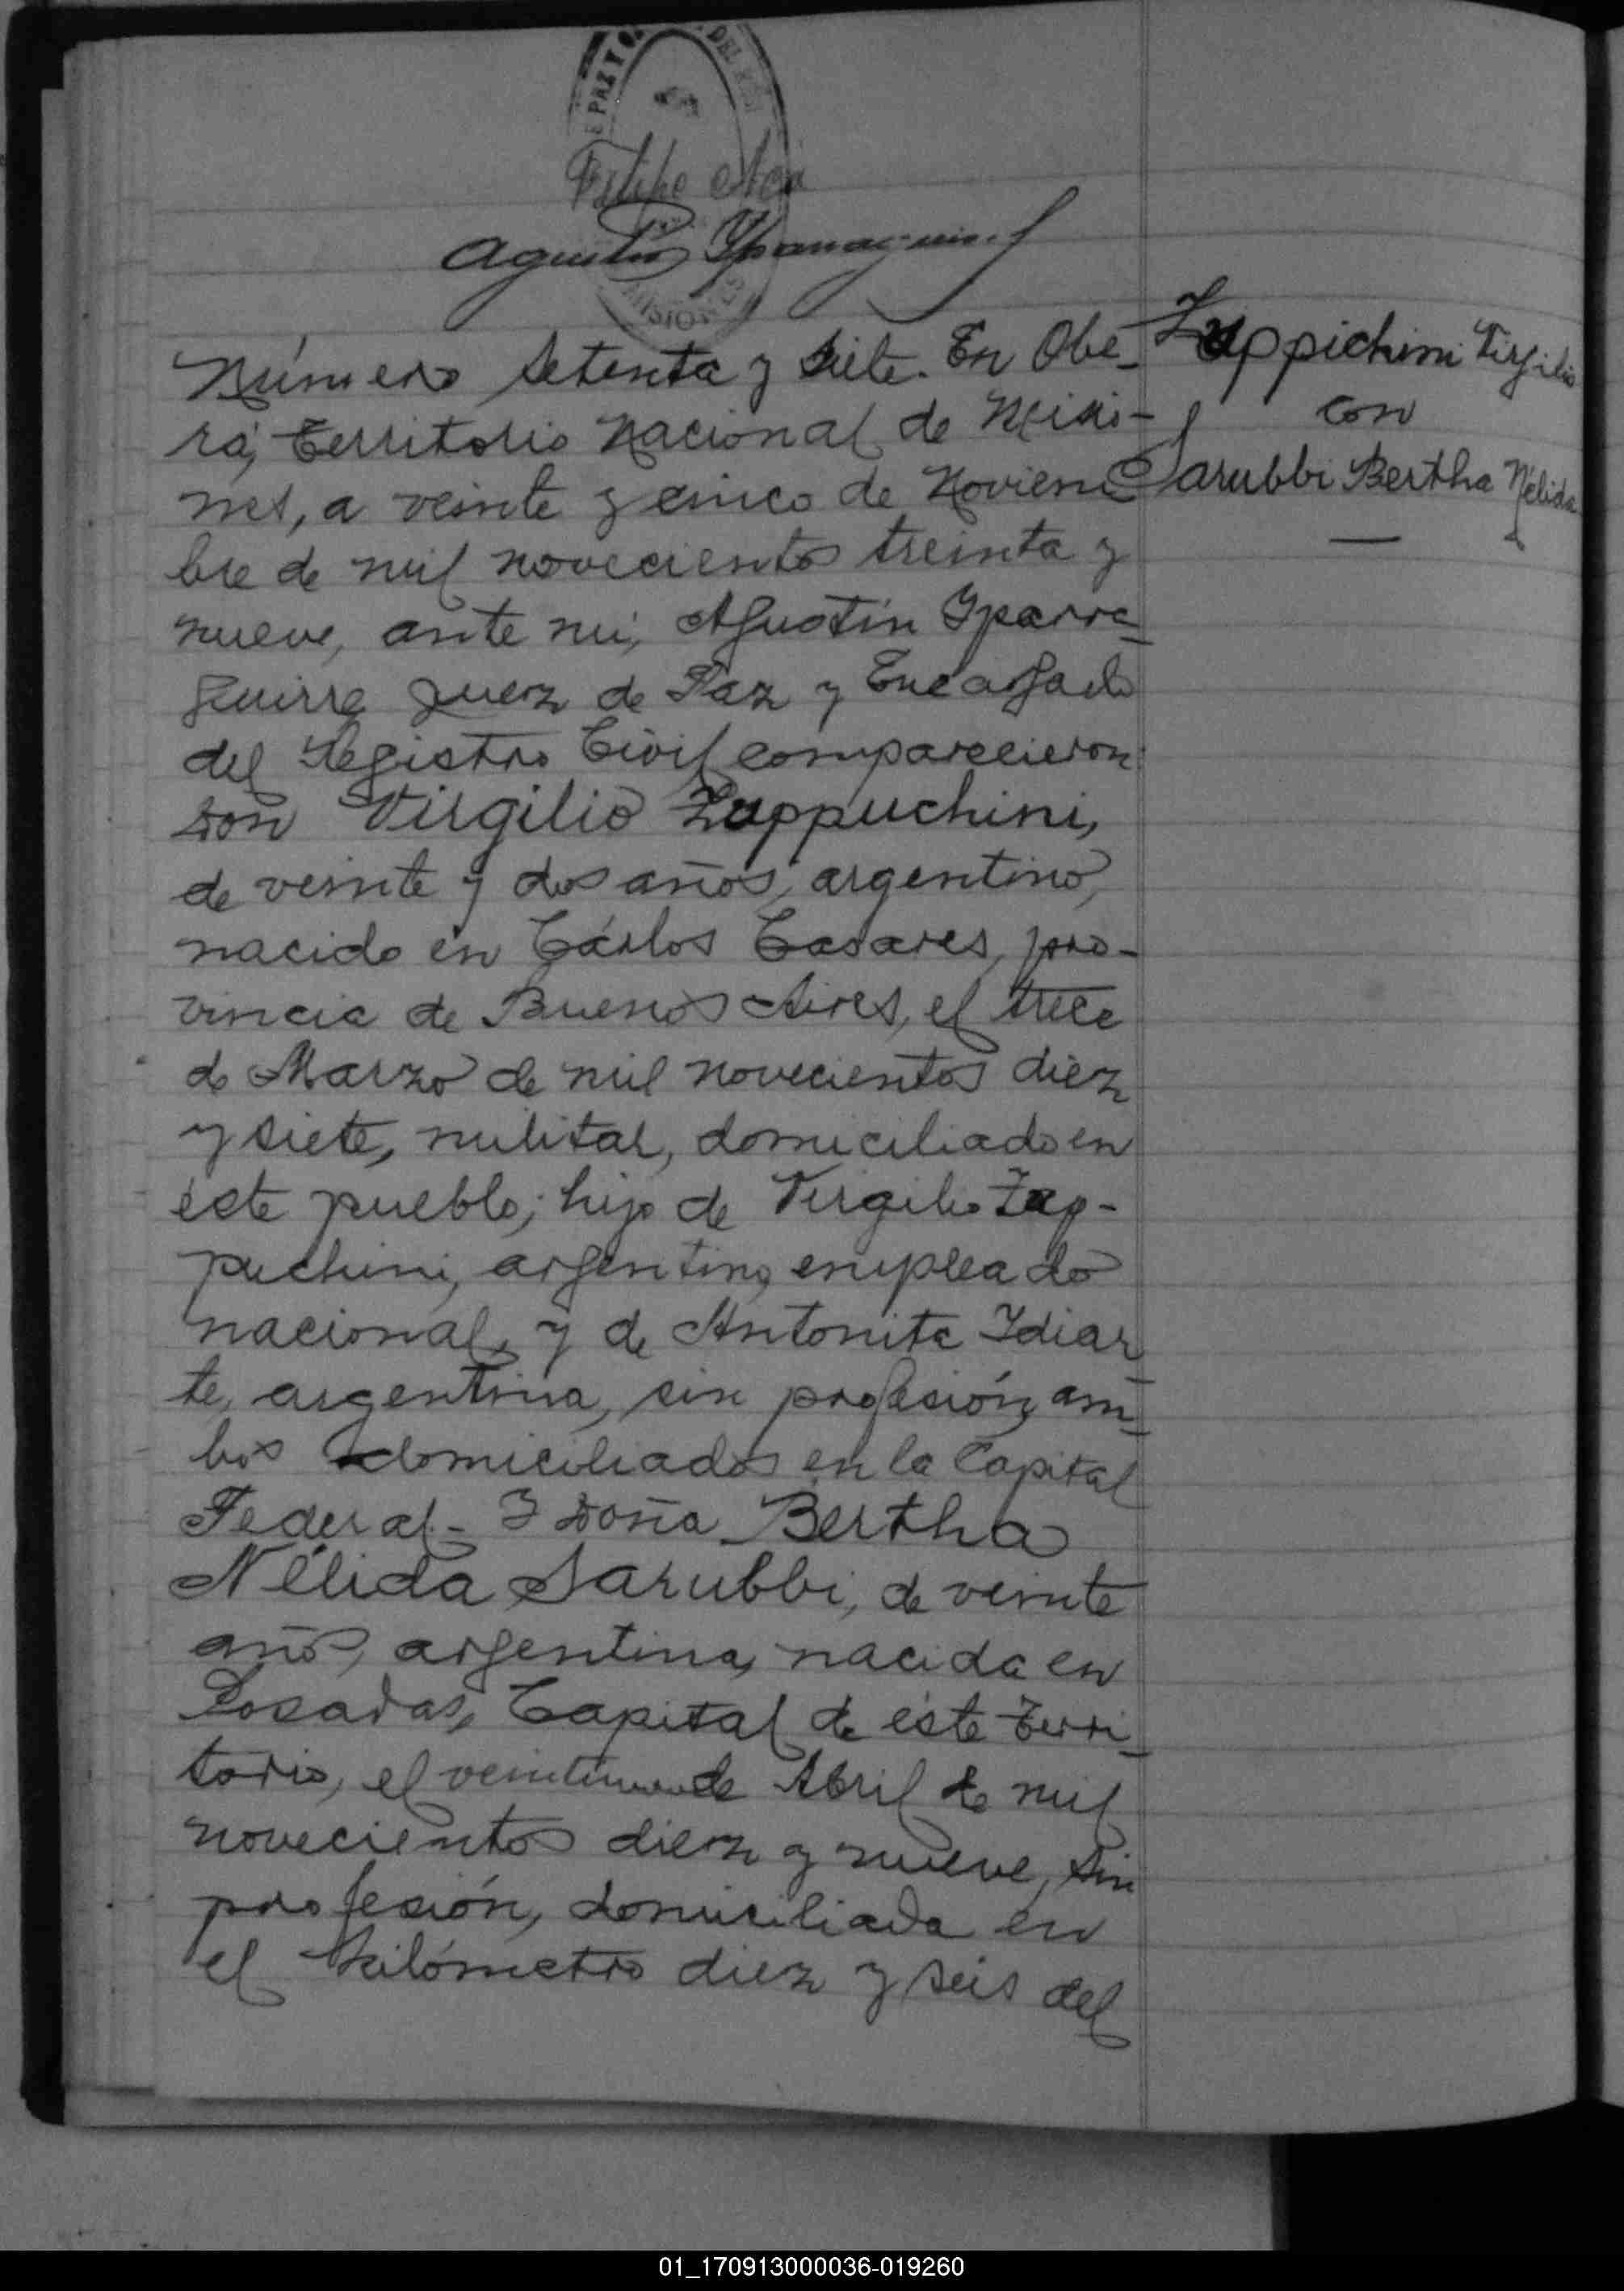 E PAZ Y
DEL
Felipe
Agustín Yparraguirre
MISIONES
Número setenta y siete. En Obe-
rá, Territorio Nacional de Misio-
nes, a veinte y cinco de Noviem-
bre de mil novecientos treinta y
nueve, ante mí, Agustín Yparra-
guirre Juez de Paz y Encargado
del Registro Civil comparecieron:
Don Virgilio Zappuchini,
de veinte y dos años, argentino,
nacido en Cárlos Casares, pro-
vincia de Buenos Aires, el trece
de Marzo de mil novecientos diez
y siete, militar, domiciliado en
éste pueblo; hijo de Virgilio Zap-
puchini, argentino, empleado
nacional, y de Antonita Ydiar-
te, argentina, sin profesión, am-
bos domiciliados en la Capital
Federal.- Y Doña Bertha
Nélida Sarubbi, de veinte
años, argentina, nacida en
Posadas, Capital de éste Terri-
torio, el de Abril de mil
novecientos diez y nueve, sin
profesión, domiciliada en
el kilómetro diez y seis del
Zappichini Virgilio
con
Sarubbi Bertha Nélida
01_170913000036-019260